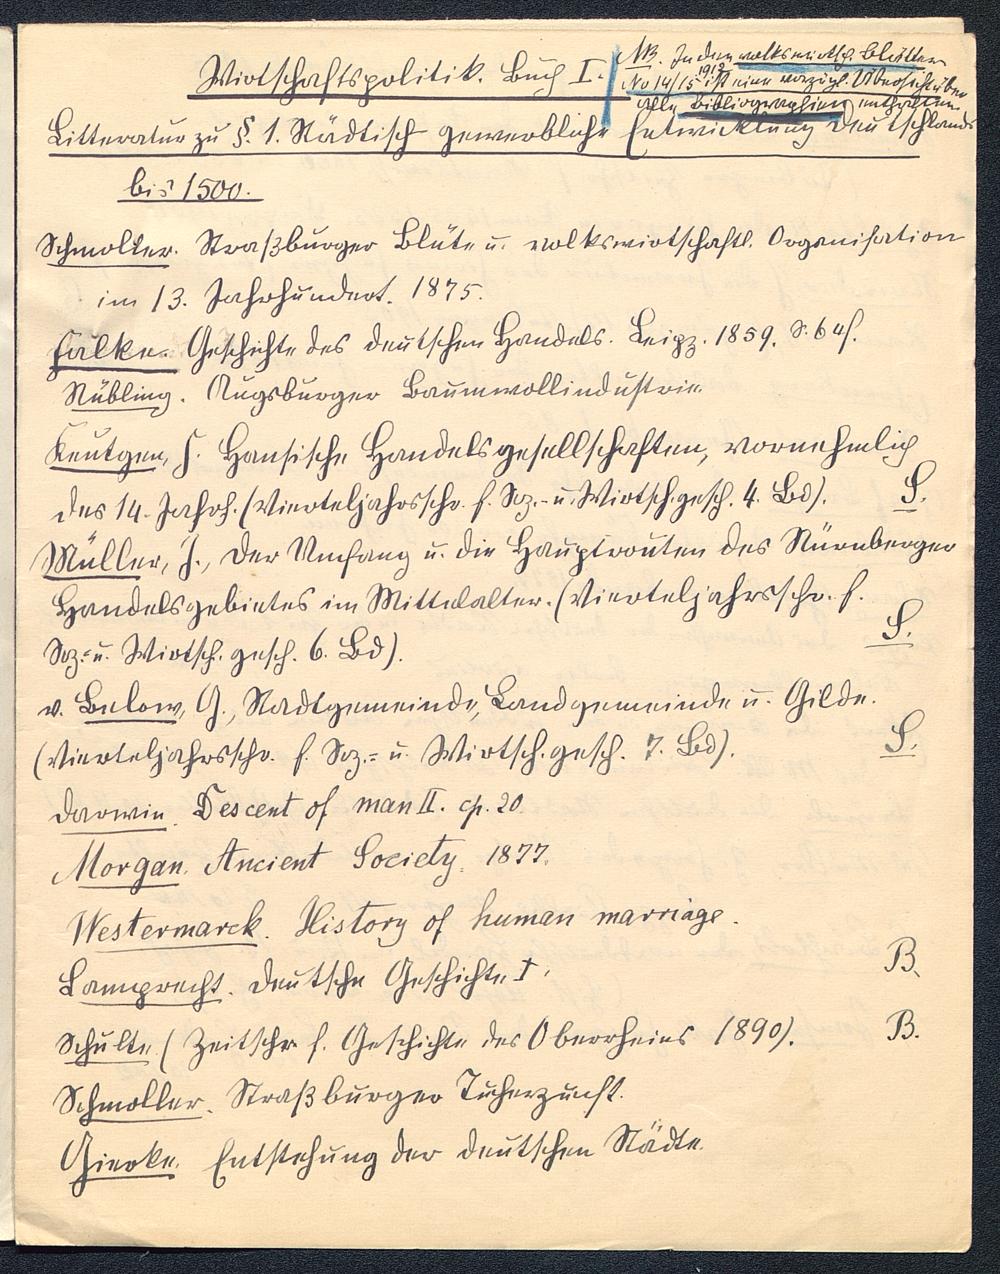 Wirtschaftspolitik. Buch I.
NB. In den volkswirtsch. Blättern
No 14/15 1912 ist eine vorzügl. Übersicht über
alle Bibliographien enthalten.
Litteratur zu §. 1. Städtisch gewerbliche Entwicklung Deutschlands
bis 1500.
Schmoller. Straßburger Blüte u. volkswirtschaftl. Organisation
im 13. Jahrhundert. 1875.
Falke. Geschichte des deutschen Handels. Leipz. 1859. S. 64f.
Nübling. Augsburger Baumwollindustrie
Keutgen, F. Hansische Handelsgesellschaften, vornehmlich
des 14. Jahrh. (Vierteljahrsschr. f. Soz.- u. Wirtsch.gesch. 4. Bd). S.
Müller, J., Der Umfang u. die Hauptrouten des Nürnberger
Handelsgebietes im Mittelalter. (Vierteljahrsschr. f.
Soz.- u. Wirtsch.gesch. 6. Bd). S.
v. Below, G., Stadtgemeinde, Landgemeinde u. Gilde.
(Vierteljahrsschr. f. Soz.- u. Wirtsch.gesch. 7. Bd). S.
Darwin. Descent of man II. cp. 20.
Morgan. Ancient Society. 1877.
Westermarck. History of human marriage.
Lamprecht. Deutsche Geschichte I. B.
Schulte. (Zeitschr. f. Geschichte des Oberrheins 1890). B.
Schmoller. Straßburger Tucherzunft.
Gierke. Entstehung der deutschen Städte.